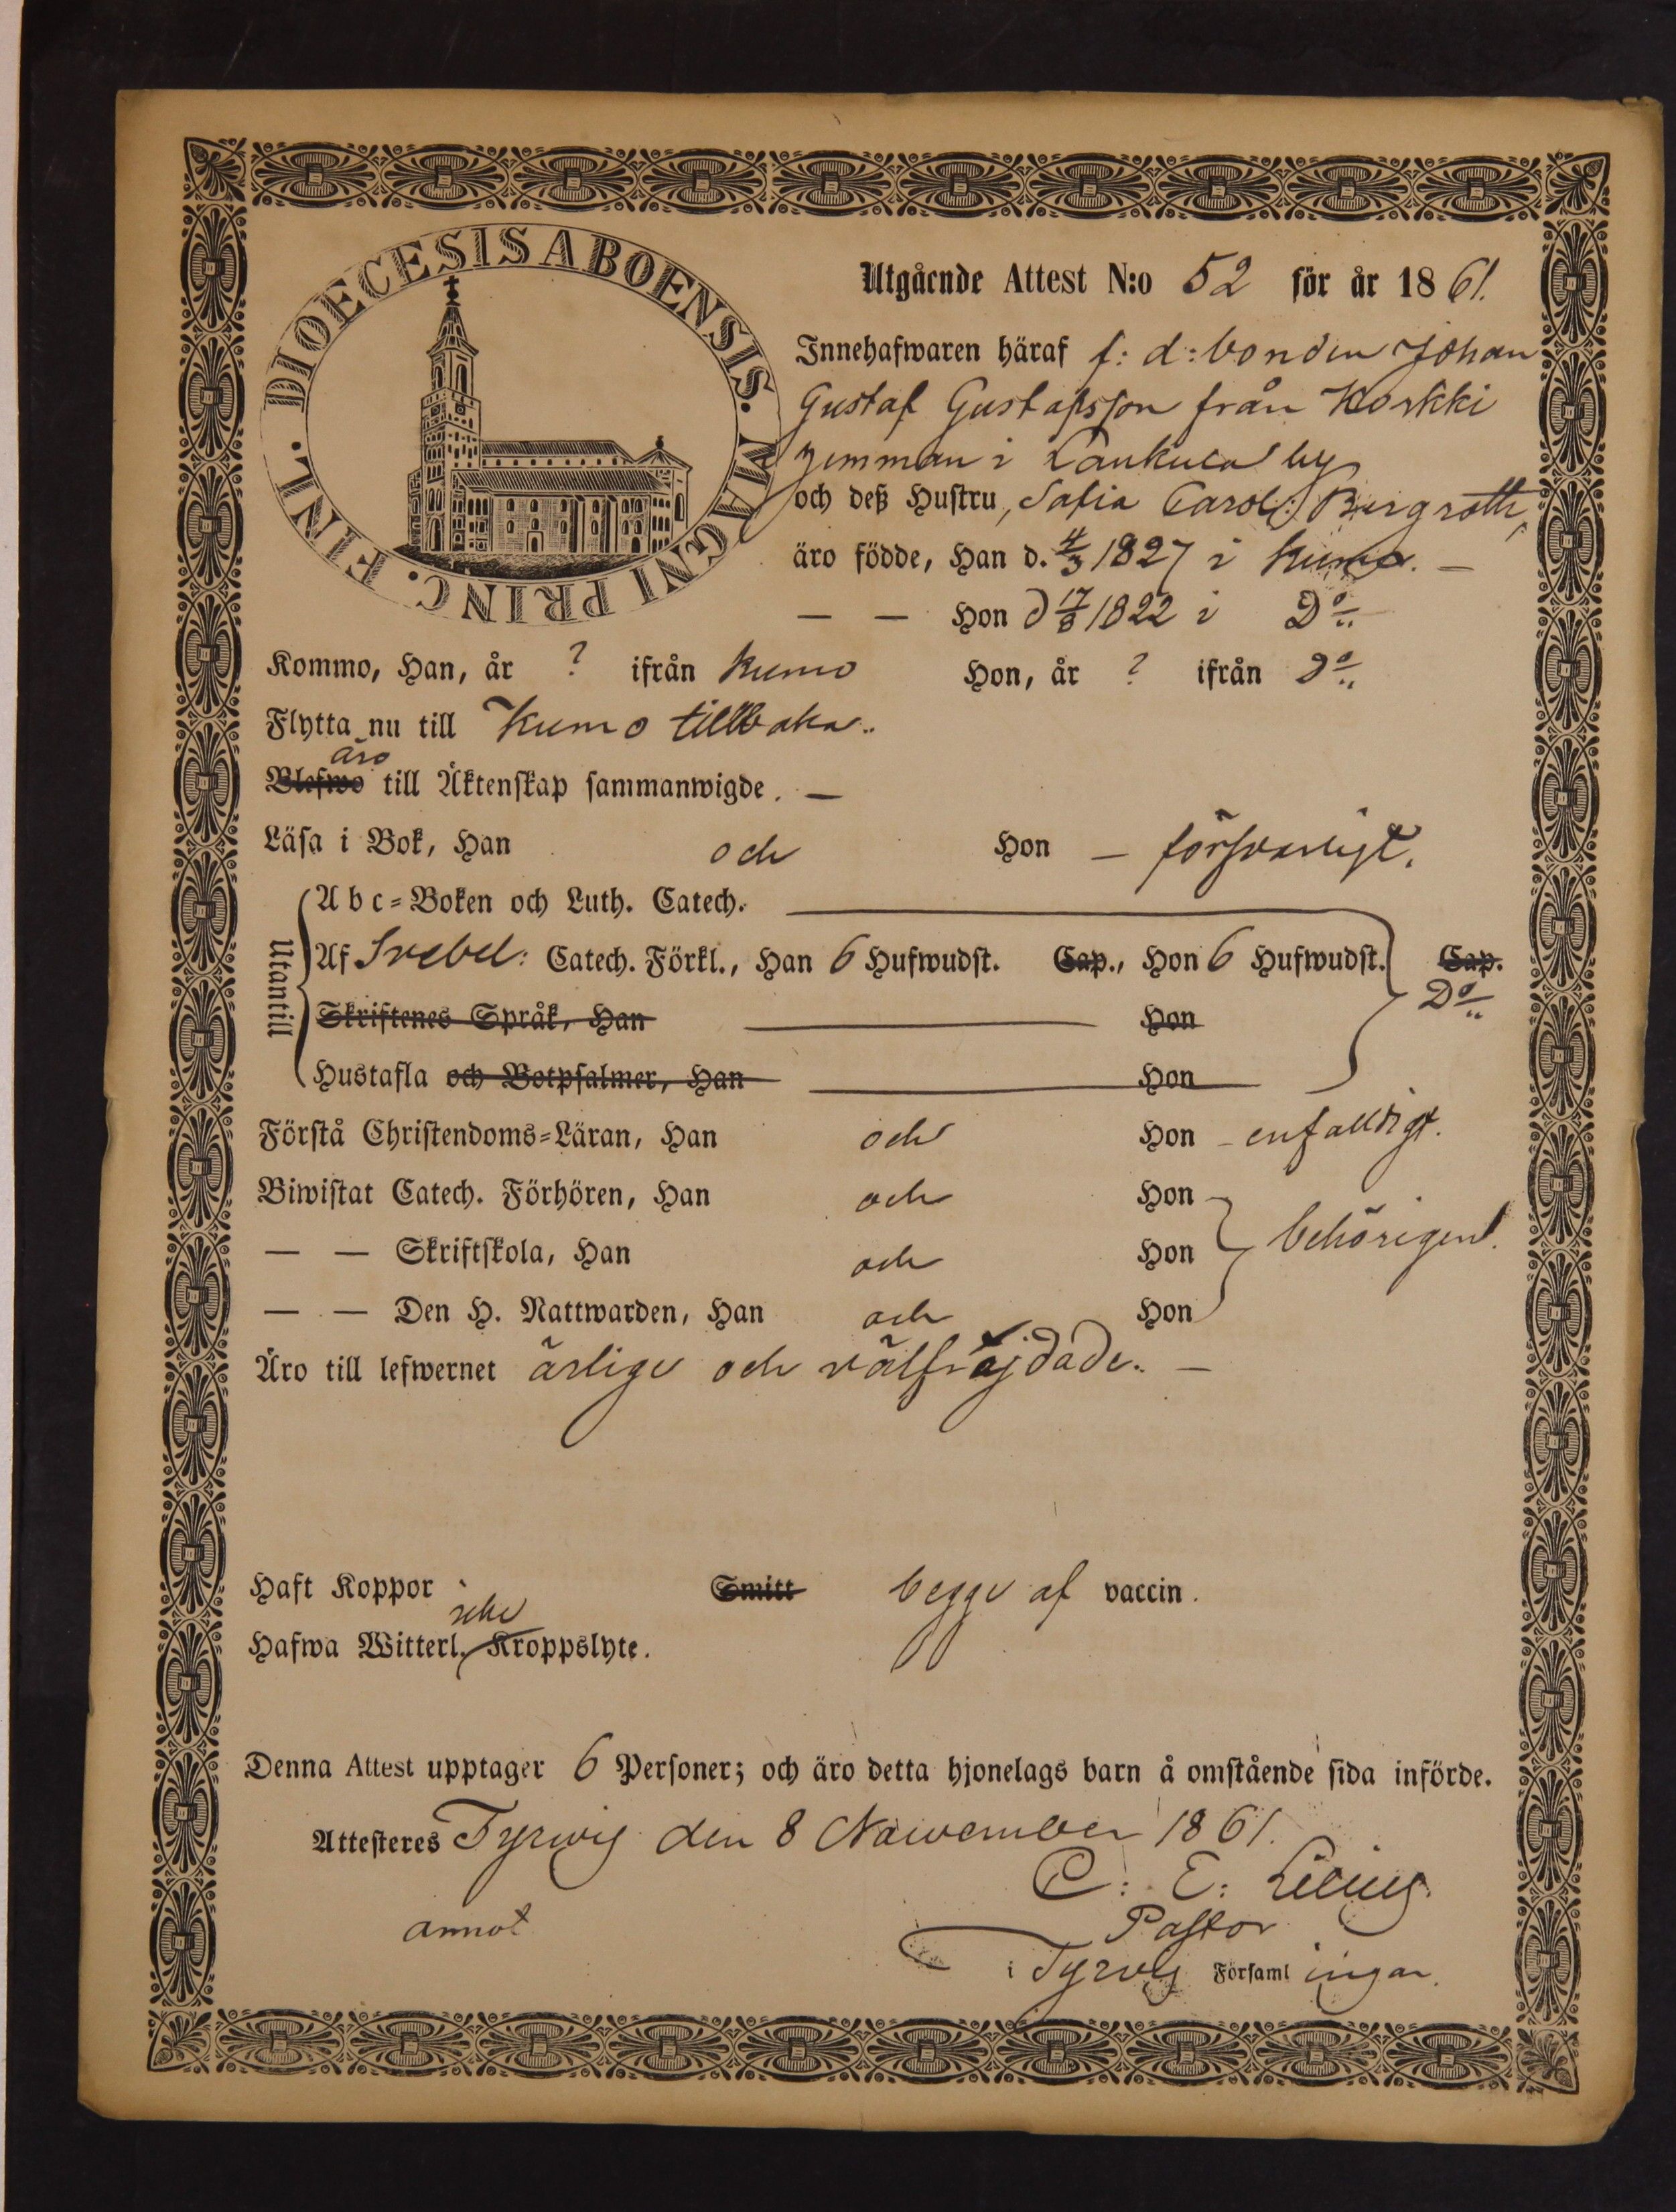 DIOECESIS ABOENSIS. MAGNI PRINC. FINL.
Utgående Attest N:o 52 för år 1861.
Innehafwaren häraf f: d: bonden Johan
Gustaf Gustafsson från Korkki
hemman i Laukula by
och deß Hustru, Sofia Carol: Bergroth,
äro födde, Han d. 4/3 1827 i Kumo. —
— — Hon d 17/8 1822 i Do
Kommo, Han, år ? ifrån Kumo Hon, år ? ifrån Do
Flytta nu till Kumo tillbaka.
äro
Blefwo till Äktenskap sammanwigde. —
Läsa i Bok, Han och Hon — försvarligt.
Utantill
Abc-Boken och Luth. Catech.
Af Svebel: Catech. Förkl., Han 6 Hufwudst. Cap., Hon 6 Hufwudst. Cap.
Do
Skriftenes Språk, Han Hon
Hustafla och Botpsalmer, Han Hon
Förstå Christendoms-Läran, Han och Hon - enfaldigt.
Biwistat Catech. Förhören, Han och Hon
— — Skriftskola, Han och Hon behörigen.
— — Den H. Nattwarden, Han och Hon
Äro till lefwernet ärlige och välfräjdade. —
Haft Koppor Smitt begge af vaccin.
Hafwa Witterl. Kroppslyte.
Denna Attest upptager 6 Personer; och äro detta hjonelags barn å omstående sida införde.
Attesteres Tyrwis den 8 November 1861.
C: E: Lilius
Pastor
annot
i Tyrvis Församlingar.